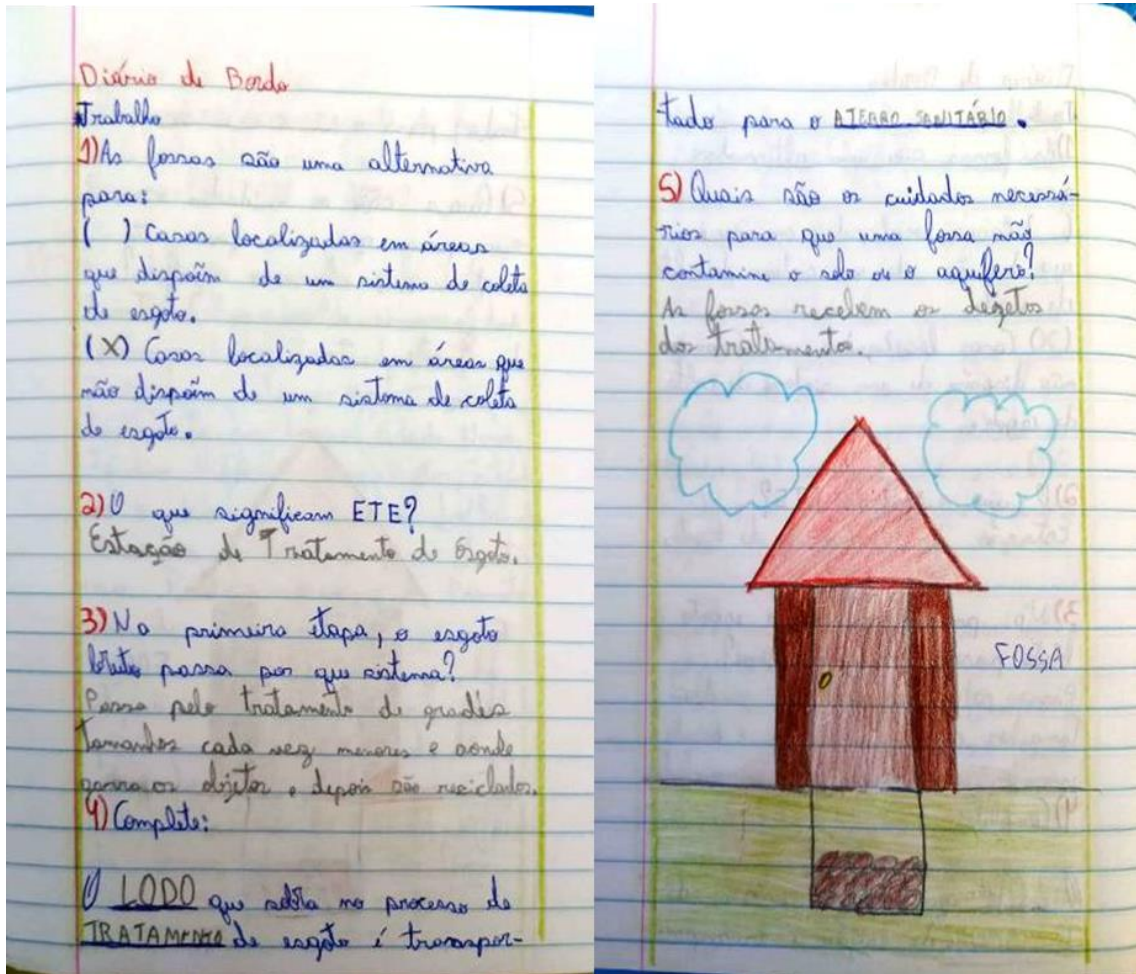 Diário de Bordo
Trabalho
1) As fossas são uma alternativa
para:
( ) Casas localizadas em áreas
que dispoẽm de um sistema de coleta
de esgoto.
(X) Casas localizadas em áreas que
não dispoẽm de um sistema de coleta
de esgoto.
2) O que significam ETE?
Estação de Tratamento de Esgoto.
3) Na primeira etapa, o esgoto
bruto passa por que sistema?
Passa pelo tratamento de grades
tamanhos cada vez menores e aonde
os objetos e depois são reciclados.
4) Complete:
O LODO que sobra no processo de
TRATAMENTO de esgoto é transpor-
tado para o ATERRO SANITÁRIO.
5) Quais são os cuidados necessá-
rios para que uma fossa não
contamine o solo ou o aquífero?
As fossas recebem os dezetos
dos tratamentos.
FOSSA